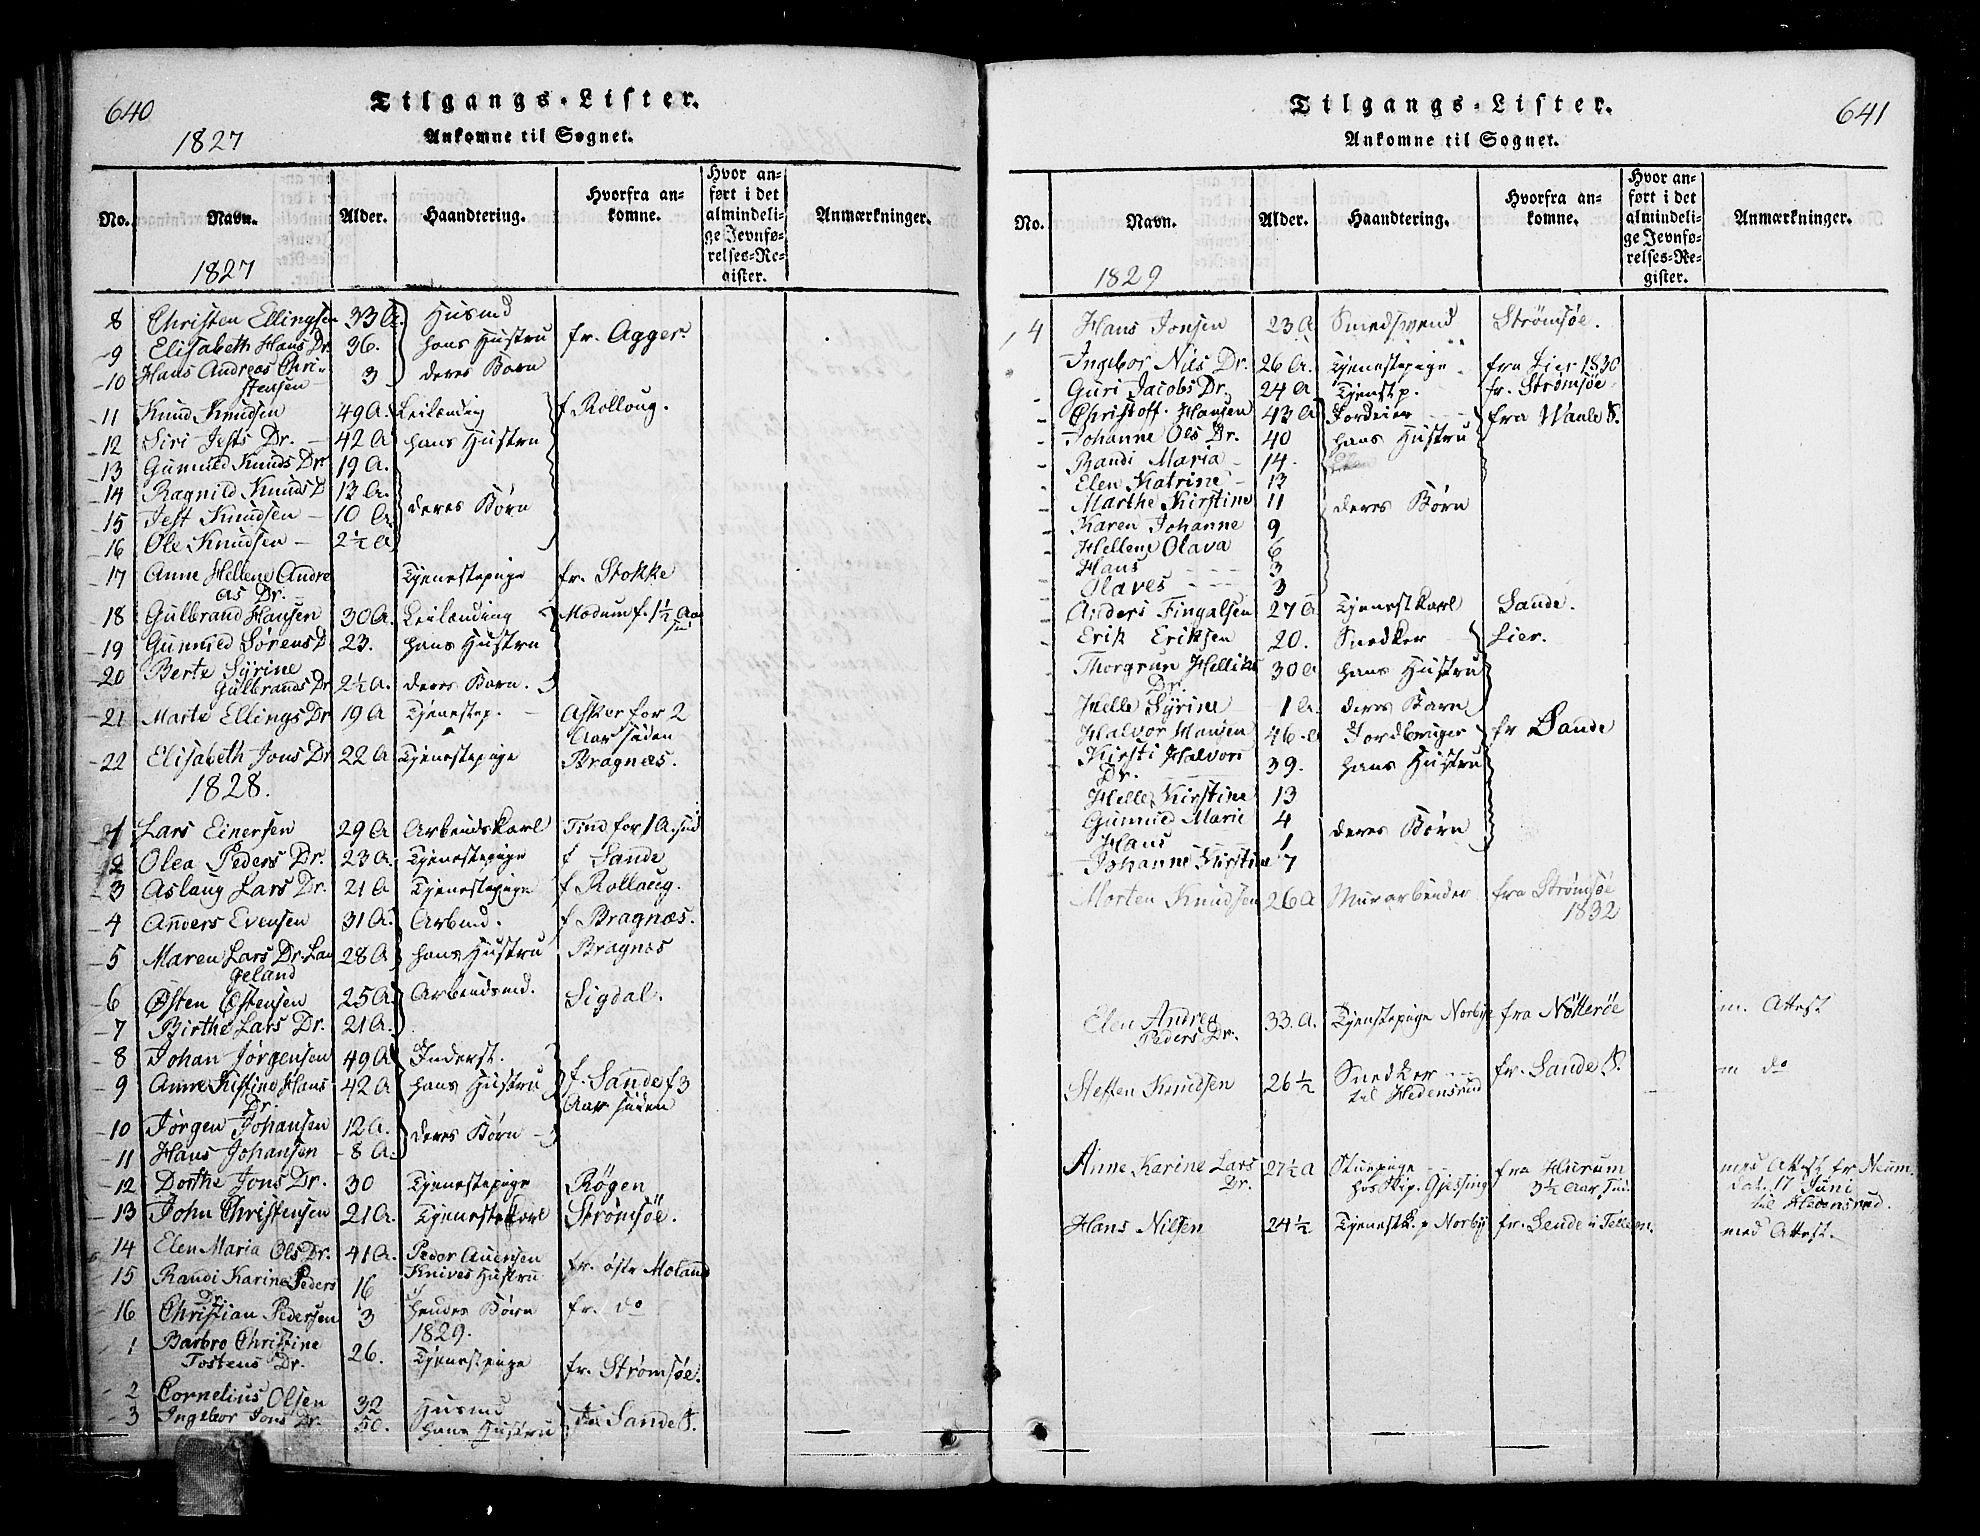 640
Tilgangs-Lister.
1827
Ankomne til Sognet.
No. Navn. Alder. Haandtering. Hvorfra ankomne. Hvor anført i det almindelige Jevnførelses-Register. Anmærkninger.
1827
8 Christen Ellingsen 33 A. Husmd fr. Agger.
9 Elisabeth Hans Dr. 36. hans Hustru
10 Hans Andreas Chri-
stensen 3 deres Barn
11 Knud Knudsen 49 A. Leilænding f Rolloug.
12 Siri Jests Dr. 42 A hans Hustru
13 Gunnild Knuds Dr 19 A.
14 Ragnild Knuds D 13 A.
15 Jest Knudsen 10 A deres Børn
16 Ole Knudsen 2½ A
17 Anne Hellene Andre
as Dr. Tjenestepige fr. Stokke
18 Gulbrand Hansen 30 A. Leilænding Modum f. 1½ Aar
19 Gunnild Sørens D 23. hans Hustru
20 Berte Syrine
Gulbrands Dr 2½ A. deres Barn.
21 Marte Ellings Dr 19 A Tjenestep. Asker for 2
Aar siden
22 Elisabeth Jons Dr 22 A Tjenestepige Bragnæs.
1828.
1 Lars Einersen 29 A Arbeidskarl Tind for 1 A. sid
2 Olea Peders Dr. 23 A. Tjenestepige f Sande
3 Aslaug Lars Dr. 21 A Tjenestepige f Rolloug.
4 Anders Evensen 31 A. Arbmd. f Bragnæs.
5 Maren Lars Dr. Lan
geland 28 A hans Hustru Bragnæs
6 Østen Østensen 25 A. Arbeidsmd. Sigdal.
7 Birthe Lars Dr. 21 A.
8 Johan Jørgensen 49 A Inderst.
9 Anne Kistine Hans
Dr. 42 A hans Hustru f. Sande f 3
Aar siden
10 Jørgen Johansen 12 A. deres Børn
11 Hans Johansen 8 A.
12 Dorthe Jons Dr. 30 Tjenestepige Røgen
13 John Christensen 21 A. Tjenestekarl Strømsöe.
14 Elen Maria Ols Dr. 41 A. Peder
Knives Hustru fr. østr Moland
15 Randi Karine Peders
Dr. 16
16 Christian Pedersen 3 hendes Børn fr. do
1829.
1 Barbro Christine
Tostens Dr. 26. Tjenestepige fr. Strømsøe.
2 Cornelius Olsen 32 Husmd
3 Ingebor Jons Dr. 50. hans Hustru Sande P.
641
Tilgangs-Lister.
Ankomne til Sognet.
No. Navn. Alder. Haandtering. Hvorfra ankomne. Hvor anført i det almindelige Jevnførelses-Register. Anmærkninger.
1829
4 Hans Jonsen 23 A Smedsvend Strömsøe.
Ingebor Nils Dr. 26 A. Tjenestepige fra Lier 1830
Guri Jacobs Dr. 24 A Tjenstp. fr. Strømsøe
Christoff. Hansen 43 A Jordeier fra Waale P.
Johanne Ols Dr. 40 hans Hustru
Randi Maria 14.
Elen Katrine 13
Marthe Kirstine 11 deres Børn
Karen Johanne 9
Hellene Olava 6
Hans 3
Olaves 3
Anders Fingalsen 27 A Tjenestkarl Sande.
Erik Eriksen 20. Snedker Lier.
Thorgrun Helliks
Dr. 30 A hans Hustru
Helle Syrine 1 A. deres Barn
Halvor Hansen 46 Jordbruger fr Sande
Kirsti Halvors
Dr. 39. hans Hustru
Helle Kirstine 13
Gunnild Marie 4 deres Børn
Hans 1
Johanne Kirstine 7
Morten Knudsen 26 A Murarbeider fra Strømsöe
1832
Elen Andrea
Peders Dr. 33. A. Tjenestepige Norbye fra Nötteröe m. Attest
Steffen Knudsen 26½ Snedker
til Hedensrud fr. Sande P. m do
Anne Karine Lars
Dr. 27½ A Stuepige
hos Skip. Gjessing fra Hurum
3½ Aar sid. med Attest fr.
dat. 17 Juni
til Hedensrud.
Hans Nilsen 24½ Tjenestk. p Norby med Attest.